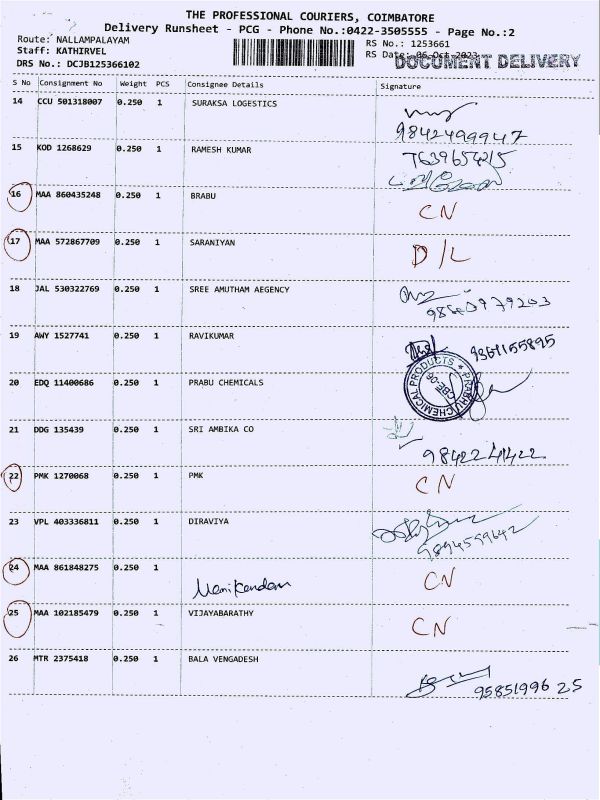 THE PROFESSIONAL COURIERS, COIMBATORE
Delivery Runsheet - PCG - Phone No.:0422-3505555 - Page No.:2
Route: NALLAMPALAYAM
RS No.: 1253661
Staff: KATHIRVEL
RS Date: 06 Oct 2023
DOCUMENT DELIVERY
DRS No.: DCJB125366102
S No Consignment No Weight PCS Consignee Details Signature
14 CCU 501318007 0.250 1 SURAKSA LOGESTICS
9842499947
15 KOD 1268629 0.250 1 RAMESH KUMAR
7639654215
16 MAA 860435248 0.250 1 BRABU CN
17 MAA 572867709 0.250 1 SARANIYAN D/L
18 JAL 530322769 0.250 1 SREE AMUTHAM AEGENCY
19 AWY 1527741 0.250 1 RAVIKUMAR 9361155895
20 EDQ 11400686 0.250 1 PRABU CHEMICALS
PRABHU CHEMICAL PRODUCTS
21 DDG 135439 0.250 1 SRI AMBIKA CO
22 PMK 1270068 0.250 1 PMK CN
23 VPL 403336811 0.250 1 DIRAVIYA
9894559642
24 MAA 861848275 0.250 1 Manikandan CN
25 MAA 102185479 0.250 1 VIJAYABARATHY CN
26 MTR 2375418 0.250 1 BALA VENGADESH
9585199625